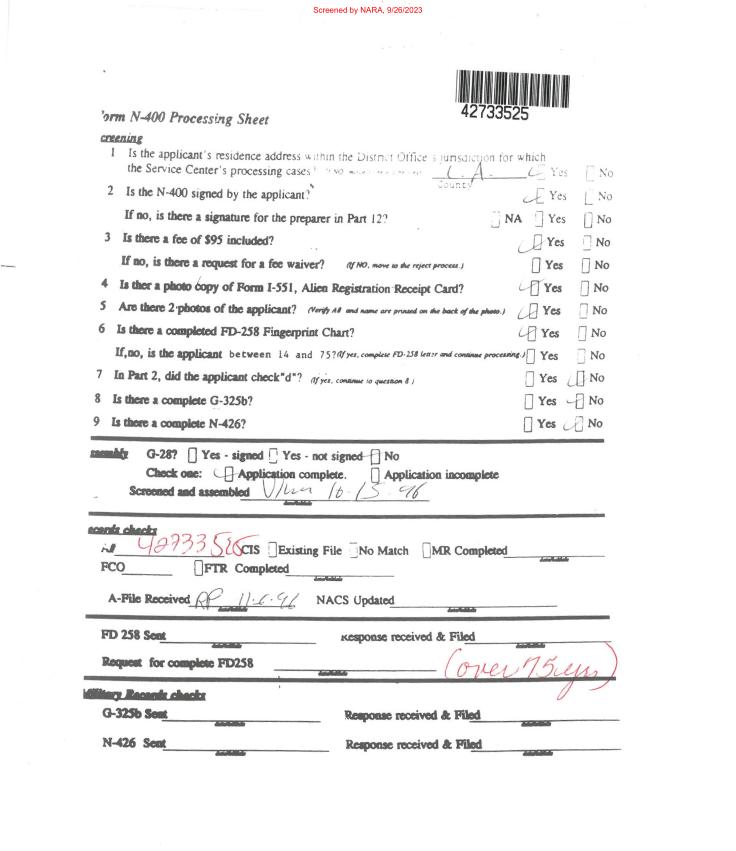 Screened by NARA, 9/26/2023
42733525
orm N-400 Processing Sheet
creening
1 Is the applicant's residence address within the District Office's jurisdiction for which
the Service Center's processing cases? L.A. Yes No
County
2 Is the N-400 signed by the applicant? Yes No
If no, is there a signature for the preparer in Part 12? NA Yes No
3 Is there a fee of $95 included? Yes No
If no, is there a request for a fee waiver? (If NO, move to the reject process.) Yes No
4 Is ther a photo copy of Form I-551, Alien Registration Receipt Card? Yes No
5 Are there 2 photos of the applicant? (Verify A# and name are printed on the back of the photo.) Yes No
6 Is there a completed FD-258 Fingerprint Chart? Yes No
If,no, is the applicant between 14 and 75?(If yes, complete FD-258 letter and continue processing.) Yes No
7 In Part 2, did the applicant check"d"? (If yes, continue to question 8.) Yes No
8 Is there a complete G-325b? Yes No
9 Is there a complete N-426? Yes No
ssembly G-28? Yes - signed Yes - not signed No
Check one: Application complete. Application incomplete
Screened and assembled 10-15-96
ecords checks
42733525 CIS Existing File No Match MR Completed
FCO FTR Completed
A-File Received RP 11-6-96 NACS Updated
FD 258 Sent Response received & Filed
Request for complete FD258 (over 75 yrs)
Military Records checks
G-325b Sent Response received & Filed
N-426 Sent Response received & Filed